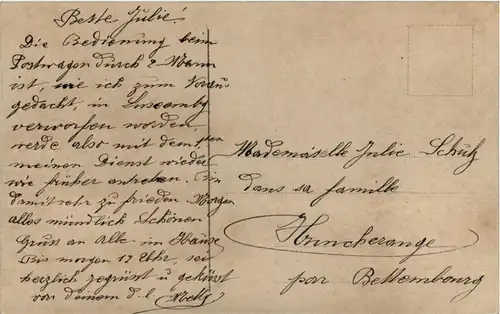 Beste Julie!
Die Bedienung beim
Postwagen durch 2 Mann
ist, wie ich zum Voraus
gedacht, in Luxemburg
verworfen worden,
werde also mit dem
meinen Dienst wieder
wie früher antreten. Bin
damit sehr zu frieden. Morgen
alles mündlich. Schönen
Gruss an Alle im Hause
Bis morgen 12 Uhr, sei
herzlich gegrüsst u geküsst
von deinem d. l.
Mademoiselle Julie Schütz
dans sa famille
Huncherange
par Bettembourg